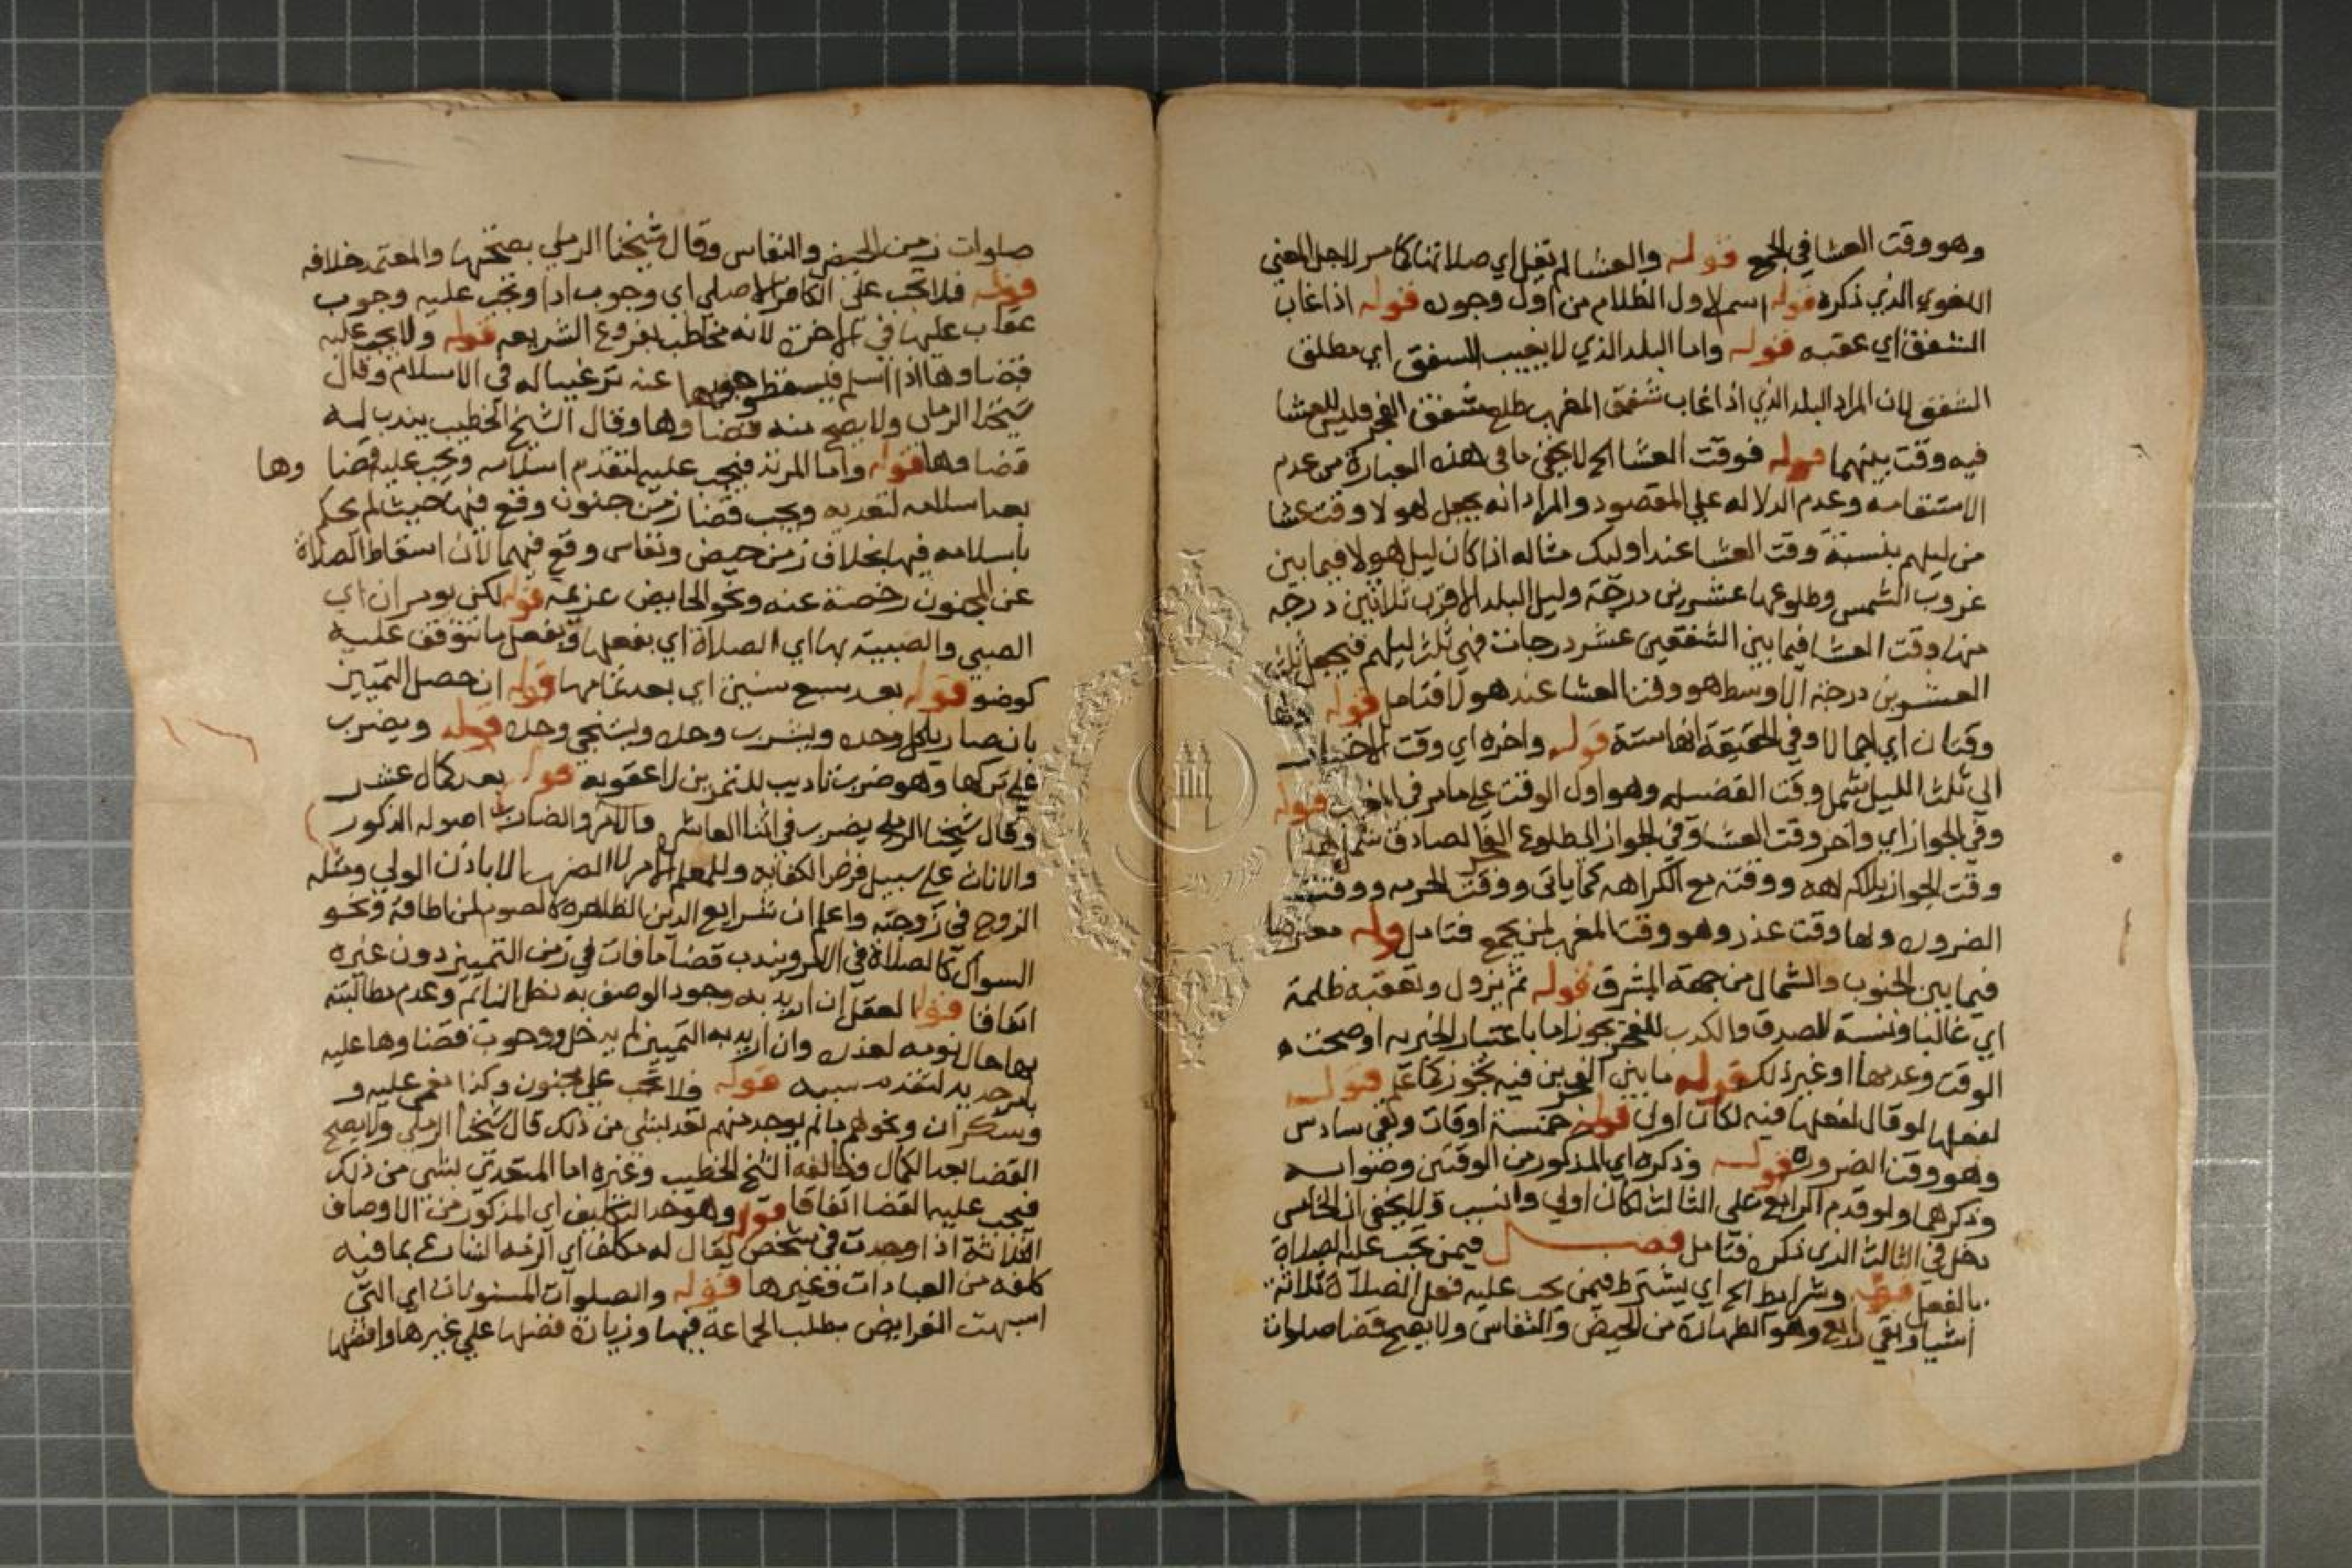 وهو وقت العشا في الجمع قوله والعشا لم تقيل اي صلاتها كما مر لاجل المعني
اللغوي الذي ذكره قوله اسم لاول الظلام من اول وجوده قوله اذا غاب
الشفق اي عقبه قوله واما البلد الذي لا يغيب الشفق اي مطلق
الشفق لان المراد البلد الذي اذا غاب شفق المغرب طلع شفق الفجر فليس للعشا
فيه وقت بينهما قوله فوقت العشا الخ لا يخفي ما في هذه العبارة من عدم
الاستقامه وعدم الدلاله علي المقصود والمراد انه يجعل لهولا وقت عشا
من ليلهم بنسبة وقت العشا عند اوليك مثاله اذا كان ليل هولا فيما بين
غروب الشمس وطلوعها عشرين درجة وليل البلد الاقرب ثلاثين درجه
منها وقت العشا فيما بين الشفقين عشر درجات فهي ثلث ليلهم فيجعل ثلث
العشرين درجة الاوسط هو وقت العشا عند هولا فتامل قوله ولها
وقتان اي اجمالا وفي الحقيقة انها ستة قوله واخره اي وقت الاختيار
الي ثلث الليل يشمل وقت الفضيله وهو اول الوقت علي ما مر في المغرب قوله
وفي الجواز اي واخر وقت العشا وفي الجواز الي طلوع الفجر الصادق شمل هذا
وقت الجواز بلا كراهه ووقته مع الكراهه كما ياتي ووقت الحرمه ووقت
الضروره ولها وقت عذر وهو وقت المغرب لمن يجمع فتامل قوله معترضا
فيما بين الجنوب والشمال من جهة المشرق قوله ثم يزول وتعقبه ظلمة
اي غالبا ونسبة الصدق والكذب للفجر يجوز اما باعتبار الخبر به او صحت
الوقت وعدمها او غير ذلك قوله ما بين الفجرين فيه تجوز كما علم قوله
لفعلها لو قال لفعلها فيه لكان اولي قوله خمسة اوقات وبقي سادس
وهو وقت الضرورة قوله وذكره اي المذكور من الوقتين وصوابه
وذكرهما ولو قدم الرابع علي الثالث لكان اولي وانسب ولا يخفي ان الخامس
دخل في الثالث الذي ذكره فتامل فصل فيمن تجب عليه الصلاة
بالفعل قوله وشرايط الخ اي يشترط فيمن يجب عليه فعل الصلاة ثلاثة
اشيا وبقي رابع وهو الطهارة من الحيض والنفاس ولا يصح قضا صلوات
صلوات زمن الحيض والنفاس وقال شيخنا الرملي بصحتها والمعتمد خلافه
قوله فلا تجب علي الكافر الاصلي اي وجوب ادا وتجب عليه وجوب
عقاب عليها في الاخرة لانه مخاطب بفروع الشريعه قوله ولا يجب عليه
قضاوها اذا اسلم فيسقط عنه ترغيبا له في الاسلام وقال
شيخنا الرملي ولا يصح منه قضاوها وقال الشيخ الخطيب يندب له
قضاوها قوله واما المرتد فيجب عليه لتقدم اسلامه ويجب عليه قضا وها
بعد اسلامه لتعديه ويجب قضا زمن جنون وقع فيها حيث لم يحكم
باسلامه فيها بخلاف زمن حيض ونفاس وقع فيهما لان اسقاط الصلاة
عن المجنون رخصة عنه ونحو الحايض عزيمة قوله لكن يومران اي
الصبي والصبية بها اي الصلاة اي بفعلها وبفعل ما تتوقف عليه
كوضو قوله بعد سبع سنين اي بعد تمامها قوله ان حصل التمييز
بان صار ياكل وحده ويشرب وحده ويستنجي وحده قوله ويضرب
علي تركها وهو ضرب تاديب للتمرين لا عقوبه قوله بعد كمال عشر
وقال شيخنا الرملي يضرب في اثنا العاشر والامر والضارب اصوله الذكور
والاناث علي سبيل فرض الكفايه وللمعلم الامر لا الضرب الا باذن الولي ومثله
الزوج في زوجته واعلم ان شرايع الدين الظاهرة كالصوم لمن اطاقه ونحو
السواك كالصلاة في الامر ويندب قضا ما فات في زمن التمييز دون غيره
اتفاقا قوله العقل ان اريد به وجود الوصف به دخل النايم وعدم مطالبته
بها حال نومه لعذره وان اريد به التمييز لم يدخل ووجوب قضاوها عليه
بامر جديد لتقدم سببه قوله فلا تجب علي مجنون وكذا مغمي عليه و
وسكران ونحوهم ما لم يوجد منهم تعد بشي من ذلك قال شيخنا الرملي ولا يصح
القضا بعد الكمال وخالفه الشيخ الخطيب وغيره اما المتعدي بشي من ذلك
فيجب عليه القضا اتفاقا قوله وهو حد التكليف اي المذكور من الاوصاف
الثلاثة اذا وجدت في شخص يقال له مكلف اي الزمه الشارع بما فيه
كلفه من العبادات وغيرها قوله والصلوات المسنونات اي التي
اشبهت الفرايض بطلب الجماعه فيها وزيادة فضلها علي غيرها وافضلها